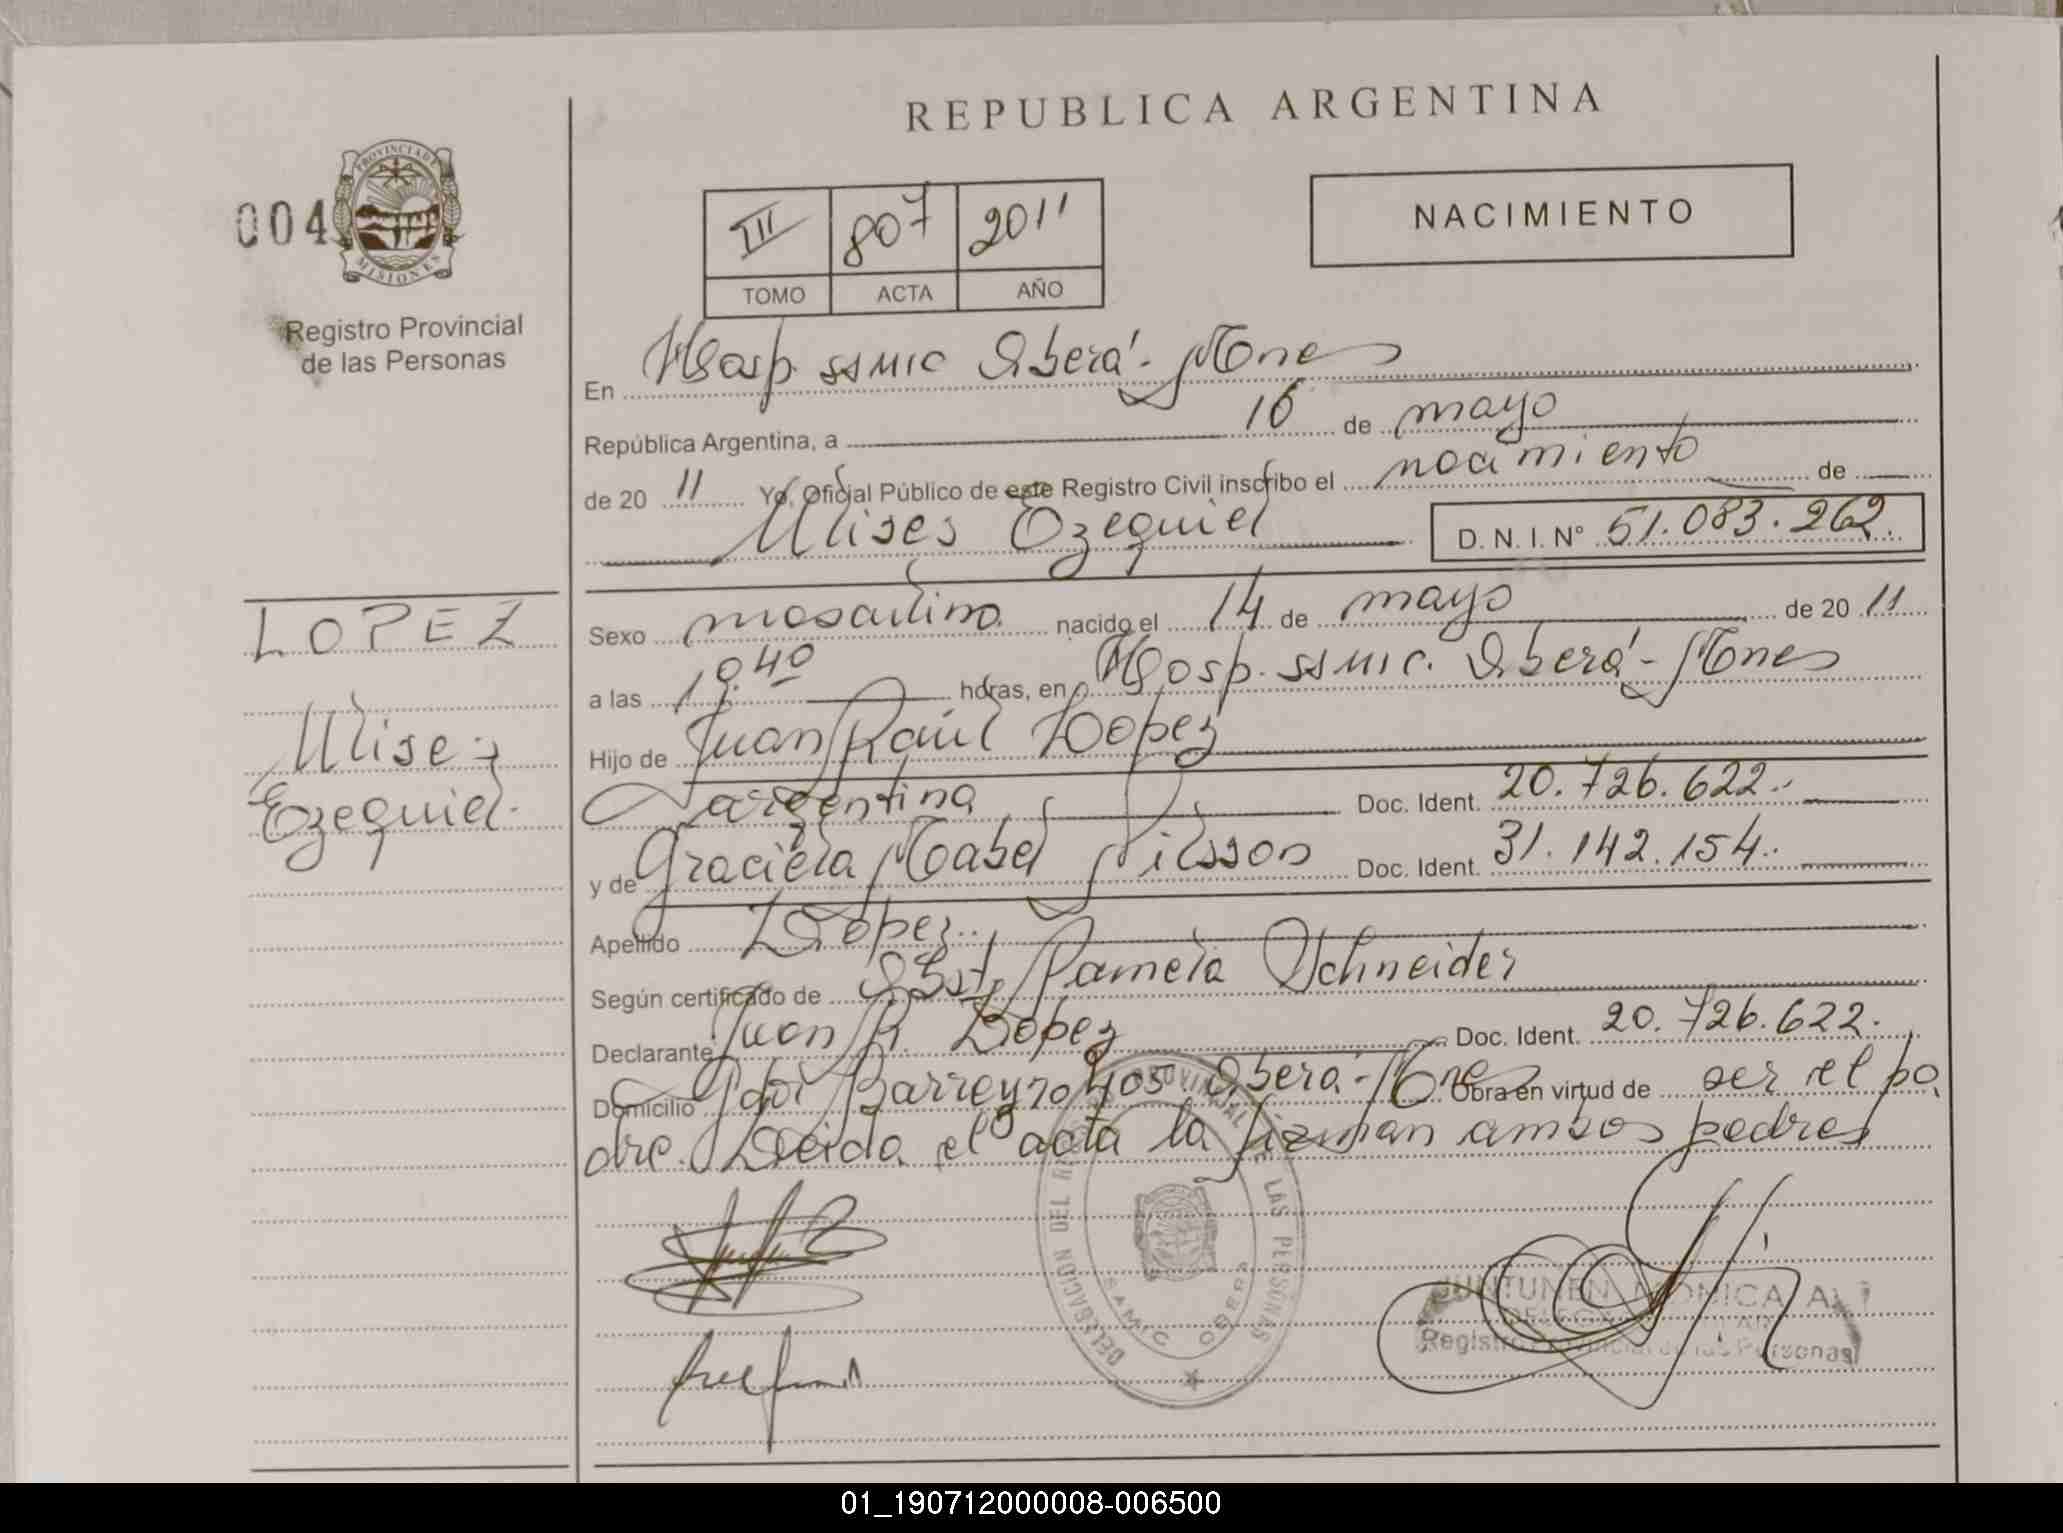 REPUBLICA ARGENTINA
004
PROVINCIA DE
MISIONES
Registro Provincial
de las Personas
III 807 2011
TOMO ACTA AÑO
NACIMIENTO
En Hosp. SAMIC Oberá - Mnes
República Argentina, a 16 de mayo
de 20 11 Yo, Oficial Público de este Registro Civil inscribo el nacimiento de
Ulises Ezequiel D. N. I. Nº 51.083.262.
LOPEZ
Ulises
Ezequiel.
Sexo masculino nacido el 14 de mayo de 20 11
a las 19:40 horas, en Hosp. SAMIC. Oberá - Mnes
Hijo de Juan Raúl Lopez
argentina Doc. Ident. 20.726.622.
y de Graciela Mabel Nilsson Doc. Ident. 31.142.154.
Apellido Lopez.
Según certificado de Obst. Pamela Schneider
Declarante Juan R. Lopez Doc. Ident. 20.726.622.
Domicilio Gdor Barreyro 405 Oberá - Mnes Obra en virtud de ser el pa
dre. Leida el acta la firman ambos padres
DELEGACION DEL REGISTRO PROVINCIAL DE LAS PERSONAS
SAMIC OBERA
JUNTUNEN MONICA A.
Registro Provincial de las Personas
01_190712000008-006500